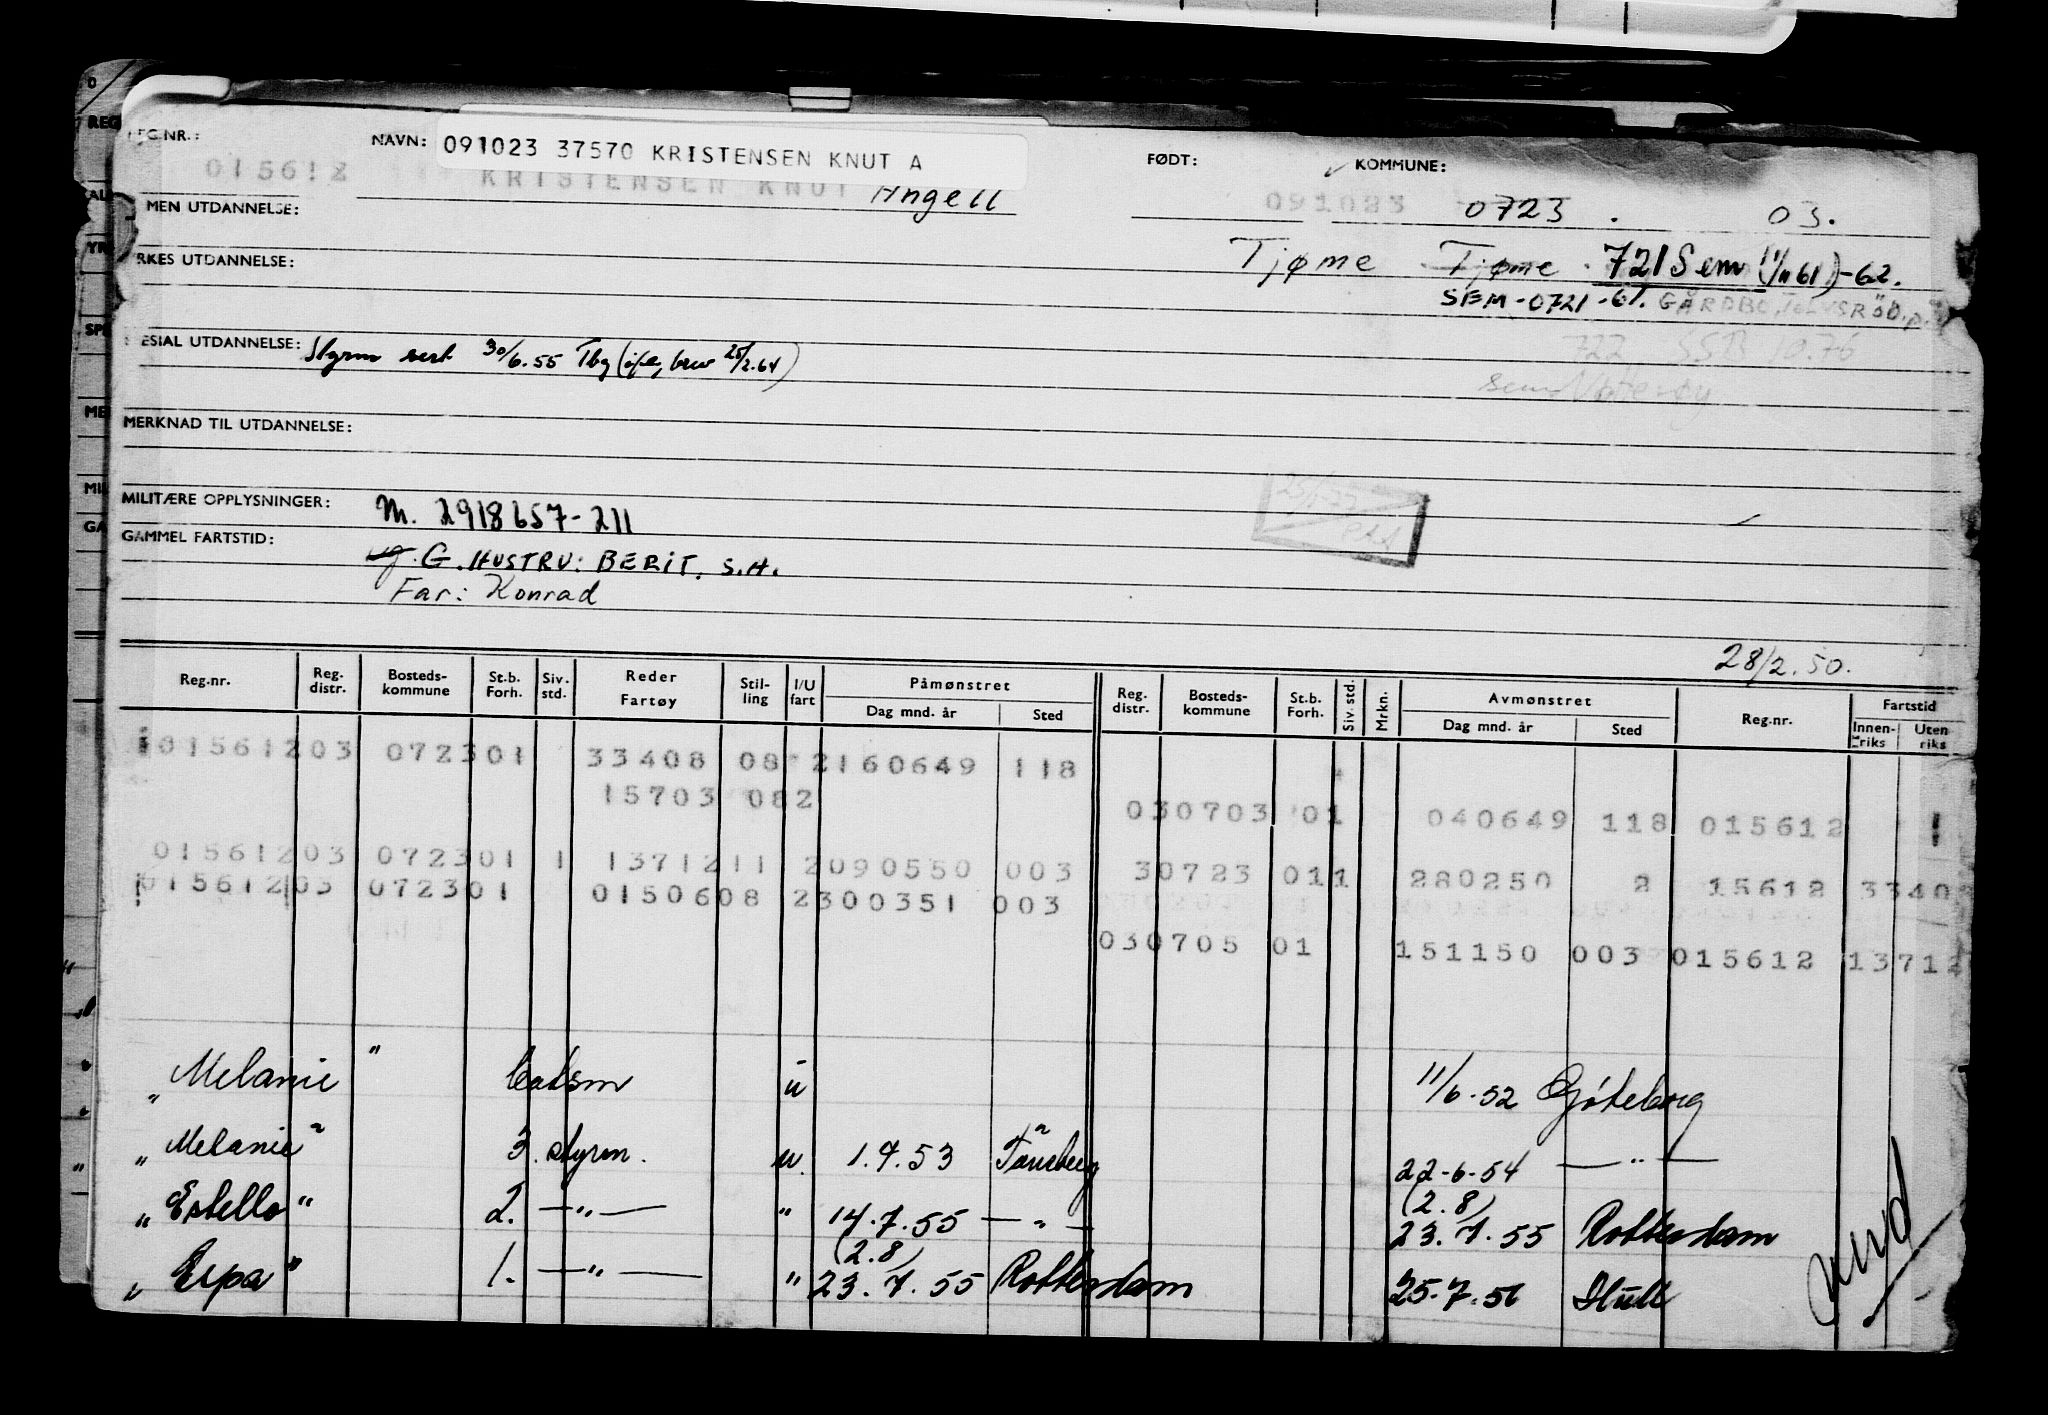 NAVN: 091023 37570 KRISTENSEN KNUT A FØDT: KOMMUNE:
015612 KRISTENSEN KNUT Angell 091023 0723 . 03.
MEN UTDANNELSE:
Tjøme Tjøme 721 Sem (1/11 61)-62.
RKES UTDANNELSE:
SEM-0721-61. GÅRDBO, TOLVSRØD,
722 SSB 10.76
ESIAL UTDANNELSE: Styrm sert 30/6.55 Tbg
Nøtterøy
MERKNAD TIL UTDANNELSE:
MILITÆRE OPPLYSNINGER: M. 2918657-211
GAMMEL FARTSTID:
G. HUSTRU: BERIT. S.H.
Far: Konrad
28/2.50.
Reg.nr. Reg. distr. Bosteds- kommune St.b. Forh. Siv. std. Reder Fartøy Stil- ling I/U fart Påmønstret Dag mnd. år Sted Reg. distr. Bosteds- kommune St.b. Forh. Siv. std. Mrkn. Avmønstret Dag mnd. år Sted Reg.nr. Fartstid Innen- riks Uten riks
01561203 072301 33408 08 2160649 118
15703 082 030703 01 040649 118 015612
01561203 072301 1 1371211 2090550 003 30723 011 280250 2 15612 3340
01561203 072301 0150608 2300351 003
030705 01 151150 003 015612 13712
"Melanie" batsm u 11/6.52 Göteborg
"Melanie" 3. styrm. u. 1.7.53 Tönsberg 22-6.54 — " —
"Estello" 2. — " — " 14.7.55 — " — (2.8) 23.7.55 Rotterdam
"Erpa" 1. — " — " (2.8) 23.7.55 Rotterdam 25.7.56 Hull